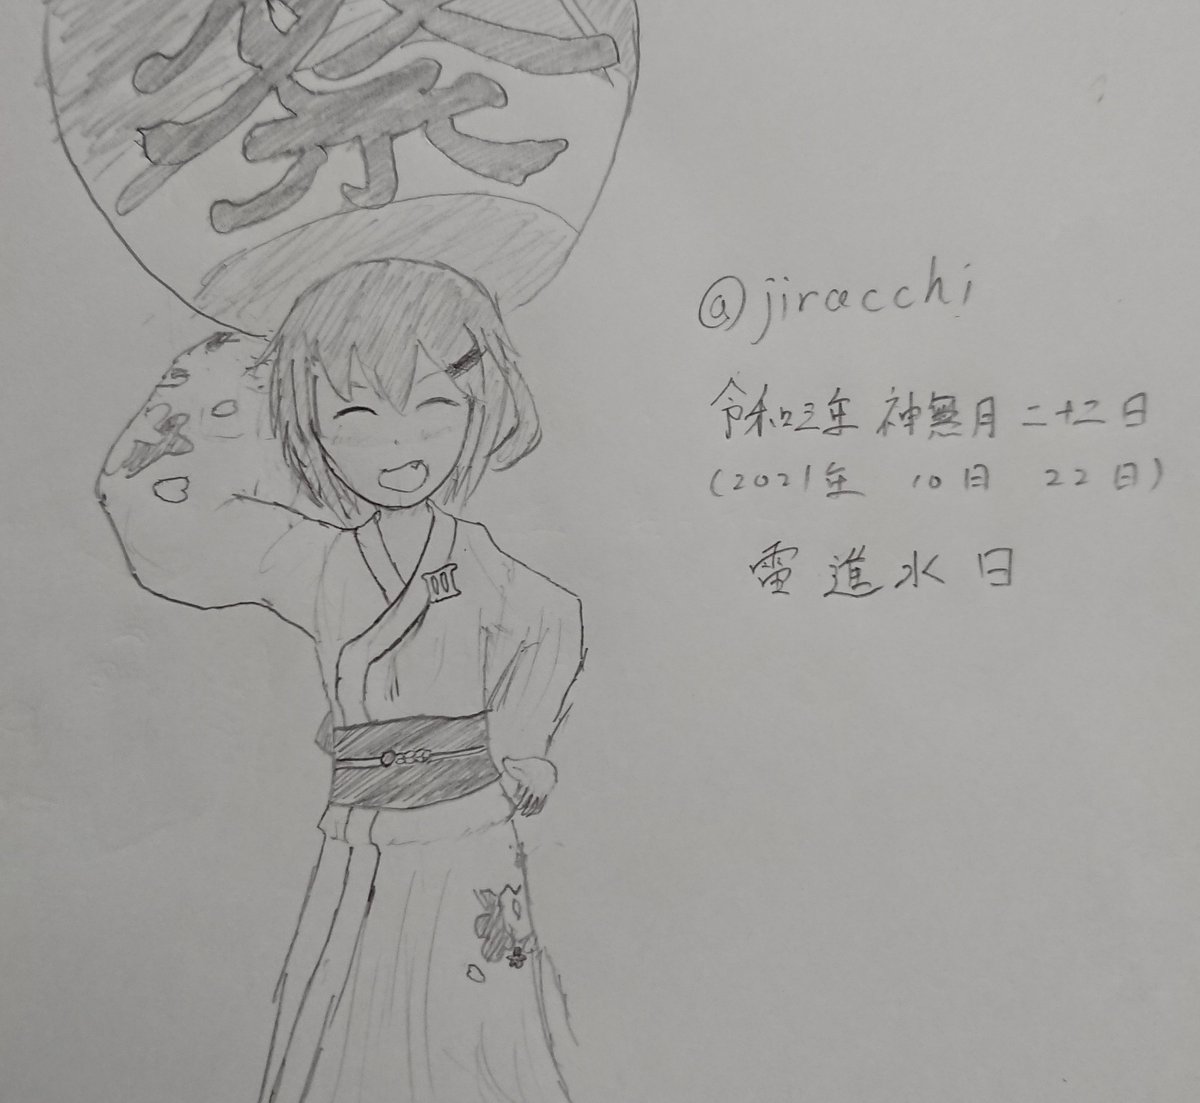 祭
@jiracchi
令和三年 神無月 二十二日
(2021年 10月 22日)
電進水日